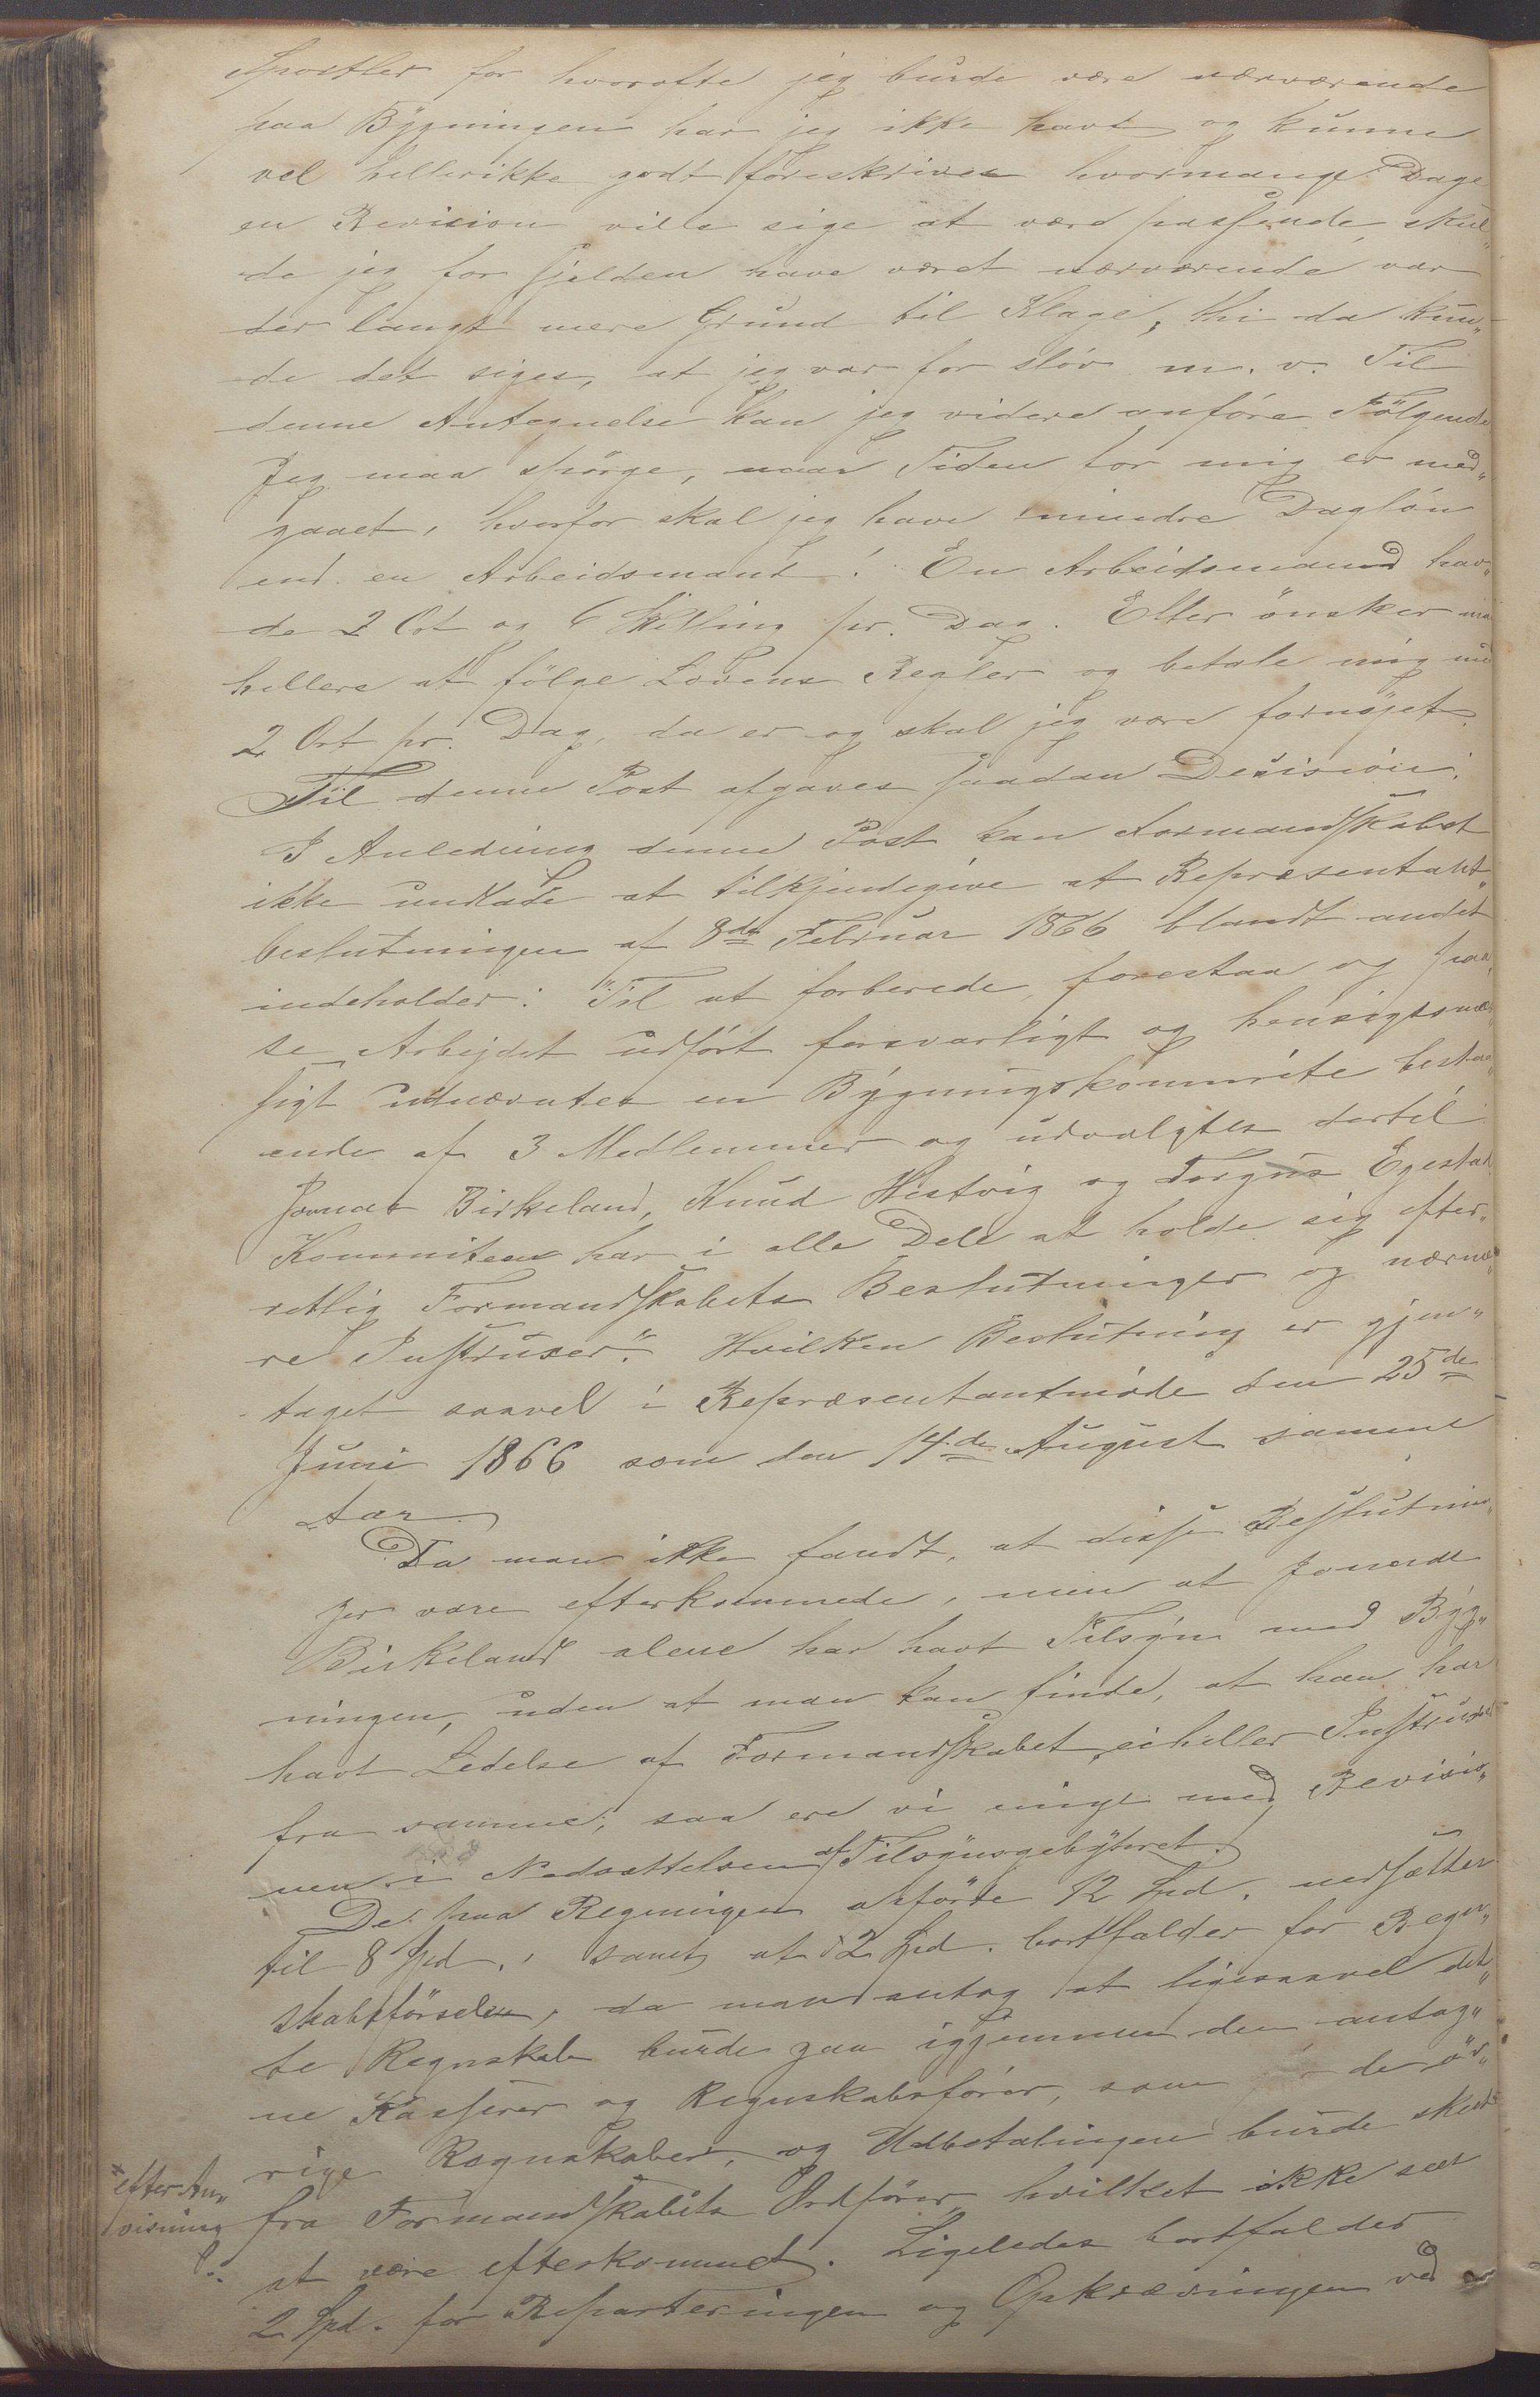 for hvorofte jeg burde være nærværende
paa Bygningen har jeg ikke havt og kunne
vel hellerikke godt foreskrives hvormange Dage
en Revision ville sige at være passende, skul„
de jeg for sjelden have været nærværende var
der langt mere Grund til Klage, thi da kun„
de det siges, at jeg var for sløv m. v. Til
denne Antegnelse kan jeg videre anføre Følgende
Jeg maa spørge, naar Tiden for mig er med„
gaaet, hvorfor skal jeg have mindre Dagløn
end en Arbeidsmand! En Arbeidsmand hav„
de 2 Ort og 6 Skilling pr. Dag. Eller ønsker
hellere at følge Lovens Regler og betale mig
2 Ort pr. Dag, da er og skal jeg være fornøjet.
Til denne Post afgaves saadan Decision:
I Anledning denne Post kan Formandskabet
ikke undlade at tilkjendegive at Repræsentant„
beslutningen af 8de Februar 1866 blandt andet
indeholder: "Til at forberede, forestaa og paa„
se Arbejdet udført forsvarligt og hensigtsmæs„
sigt udnævntes en Bygningskommite bestaa„
ende af 3 Medlemmer og udvalgtes dertil
Jonas Birkeland, Knud Hestvig og Torgus Egestad
Kommiteen har i alle Dele at holde sig efter„
rettlig Formandskabets Beslutninger og nærme„
re Instruxer". Hvilken Beslutning er gjen„
taget saavel i Repræsentantmøde den 25de
Juni 1866 som den 14de August samme
Aar.
Da man ikke fandt, at disse Beslutnin„
ger være efterkommede, men at Jonas
Birkeland alene har havt Tilsyn med Byg„
ningen, uden at man kan finde, at han har
havt Ledelse af Formandskabet, eiheller Instruxer
fra samme, saa ere vi enige med Revisio„
nen i Nedsættelsen af Tilsynsgebyhret.
De paa Regningen anførte 12 Spd. nedsætter
til 8 Spd., samt at 2 Spd. bortfalder for Regn„
skabsførselen, da man antog at ligesaavel det„
te Regnskab burde gaa igjennem den antag„
ne Kasserer og Regnskabsfører, som de øv„
rige Regnskaber, og Udbetalingen burde skeet
×efter An„
visning
fra Formandskabets Ordfører hvilket ikke sees
at være efterkommet. Ligeledes bortfalder
2 Spd. for Reparteringen og Opkrævningen ved